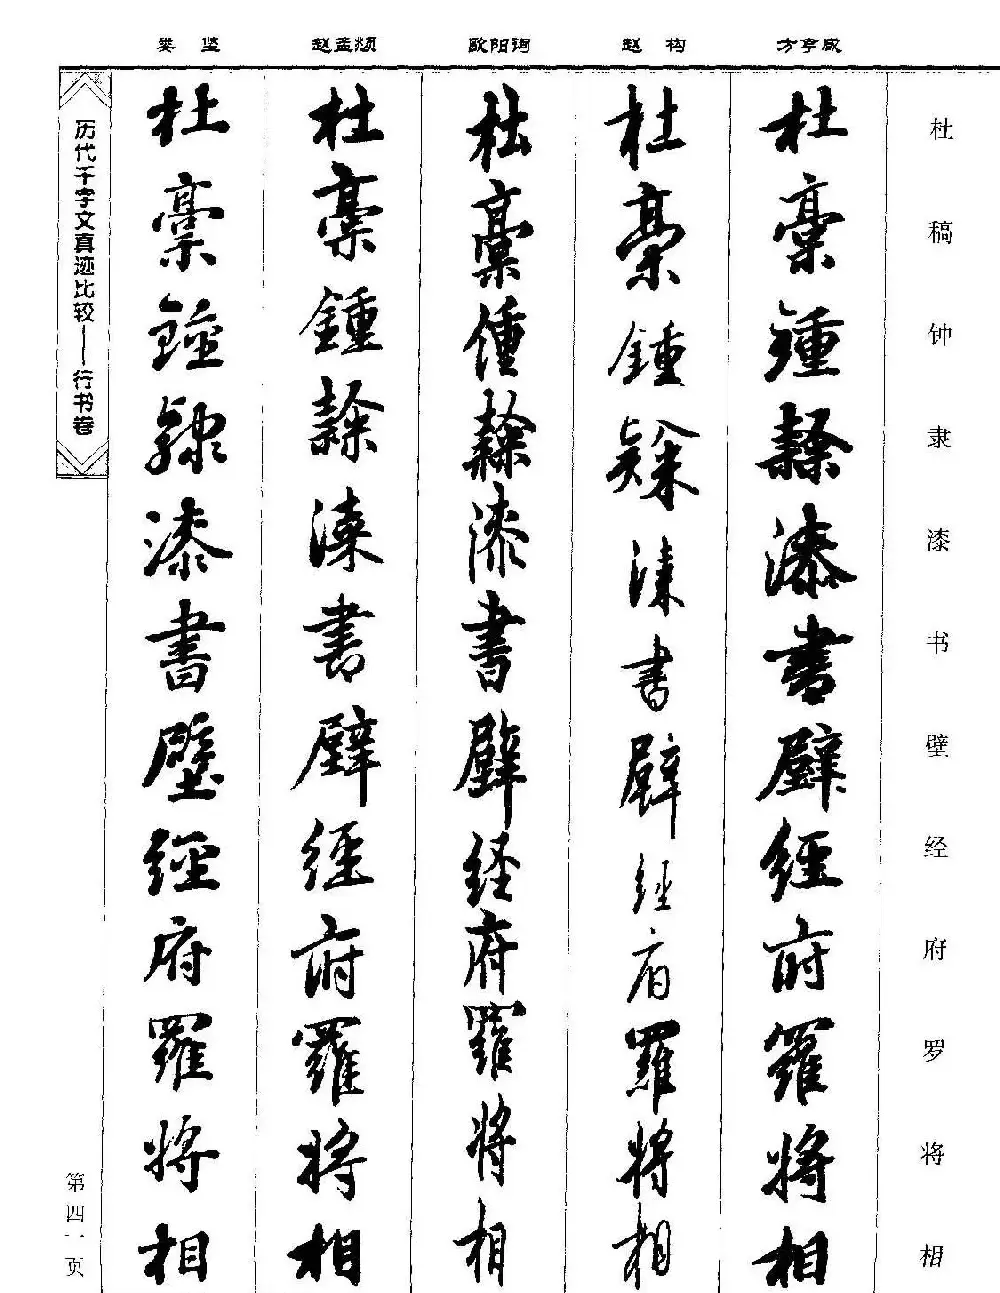 娄坚 赵孟頫 欧阳询 赵构 方亨咸
杜稿钟隶漆书壁经府罗将相
杜稾鍾隸漆書壁經府羅將相
杜稾鍾隸漆書壁經府羅將相
杜稾鍾隸漆書壁経府羅將相
杜稾鍾隸漆書壁經府羅將相
杜稾鍾隸漆書壁經府羅將相
历代千字文真迹比较——行书卷
第四一页